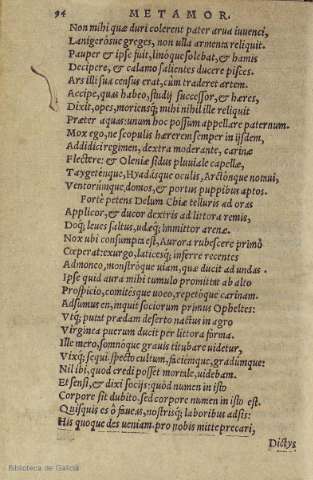 94 METAMOR.
Non mihi quæ duri colerent pater arua iuuenci,
Lanigerósue greges, non ulla armenta reliquit.
Pauper & ipse fuit, linoque solebat, & hamis
Decipere, & calamo salientes ducere pisces.
Ars illi sua census erat, cùm traderet artem.
Accipe, quas habeo, studij successor, & hæres,
Dixit, opes, moriensq; mihi nihil ille reliquit
Præter aquas: unum hoc possum appellare paternum.
Mox ego, ne scopulis hærerem semper in ijsdem,
Addidici regimen, dextra moderante, carinæ
Flectere: & Oleniæ sidus pluuiale capellæ,
Taygetenque, Hyadásque oculis, Arctónque notaui,
Ventorúmque domos, & portus puppibus aptos.
Fortè petens Delum Chiæ telluris ad oras
Applicor, & ducor dextris ad littora remis,
Doq; leues saltus, udæq; immittor arenæ.
Nox ubi consumpta est, Aurora rubescere primò
Cœperat: exurgo, laticesq; inferre recentes
Admoneo, monstróque uiam, quæ ducit ad undas.
Ipse quid aura mihi tumulo promittat ab alto
Prospicio, comitésque uoco, repetóque carinam.
Adsumus en, inquit sociorum primus Opheltes:
Vtq; putat prædam deserto nactus in agro
Virginea puerum ducit per littora forma.
Ille mero, somnóque grauis titubare uidetur,
Vixq; sequi. specto cultum, faciémque, gradúmque:
Nil ibi, quod credi posset mortale, uidebam.
Et sensi, & dixi socijs: quòd numen in isto
Corpore sit dubito, sed corpore numen in isto est.
Quisquis es ô faueas, nostrisq; laboribus adsis:
His quoque des ueniam. pro nobis mitte precari,
Dictys
Biblioteca de Galicia